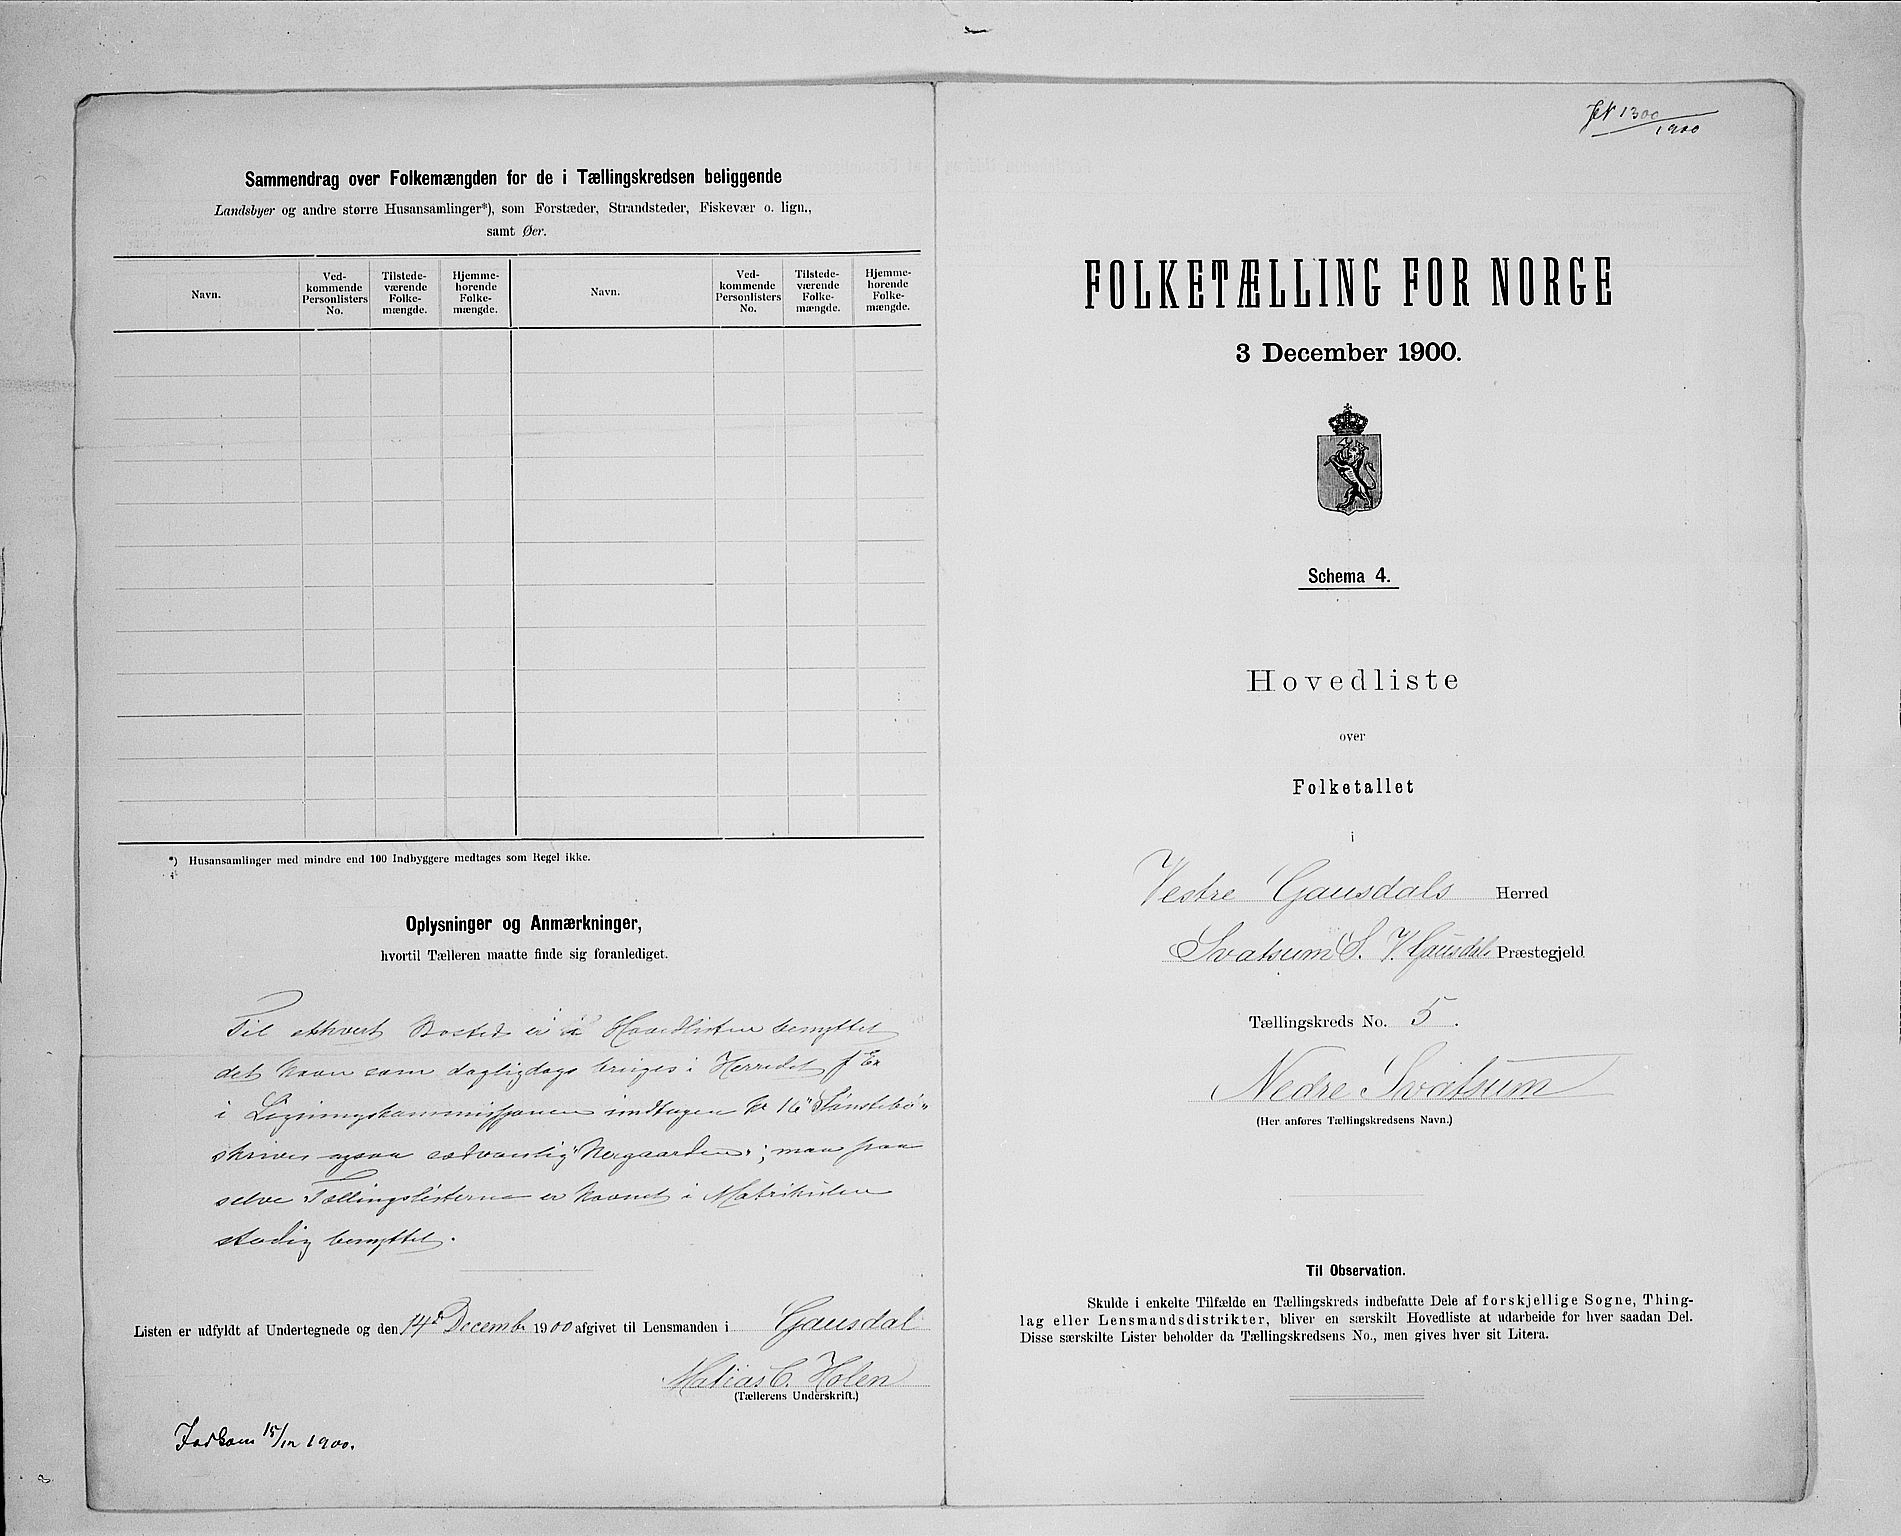 Sammendrag over Folkemængden for de i Tællingskredsen beliggende
Landsbyer og andre større Husansamlinger*), som Forstæder, Strandsteder, Fiskevær o. lign.,
samt Øer.
Navn.
Ved-
kommende
Personlisters
No.
Tilstede-
værende
Folke-
mængde.
Hjemme-
hørende
Folke-
mængde.
Navn.
Ved-
kommende
Personlisters
No.
Tilstede-
værende
Folke-
mængde.
Hjemme-
hørende
Folke-
mængde.
*) Husansamlinger med mindre end 100 Indbyggere medtages som Regel ikke.
Oplysninger og Anmærkninger,
hvortil Tælleren maatte finde sig foranlediget.
Til ethvert Bosted er i Hovedlisten benyttet
det Navn som dagligdags bruges i Herredet f Ex
i Ligningskommissjonen indtagen No 16 "Stønstebø"
skrives ogsaa sædvanlig "Nergaarden"; men paa
selve Tællingslisterne er Navnet i Matrikulen
stadig benyttet.
Listen er udfyldt af Undertegnede og den 14d Decemb. 1900 afgivet til Lensmanden i Gausdal
Matias C. Holen
(Tællerens Underskrift.)
15/12 1900.
JN 1300
1900
FOLKETÆLLING FOR NORGE
3 December 1900.
Schema 4.
Hovedliste
over
Folketallet
i
Vestre Gausdals Herred
Svatsum S. V. Gausdals Præstegjeld
Tællingskreds No. 5.
Nedre Svatsum
(Her anføres Tællingskredsens Navn.)
Til Observation.
Skulde i enkelte Tilfælde en Tællingskreds indbefatte Dele af forskjellige Sogne, Thing-
lag eller Lensmandsdistrikter, bliver en særskilt Hovedliste at udarbeide for hver saadan Del.
Disse særskilte Lister beholder da Tællingskredsens No., men gives hver sit Litera.